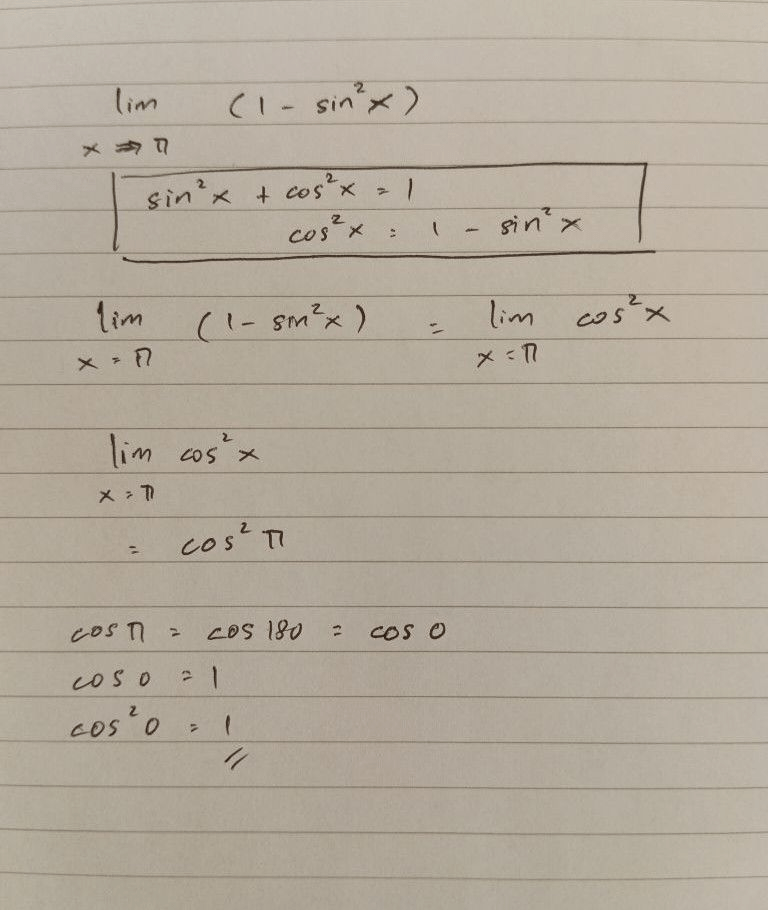 lim (1 - sin²x)
x → π
sin²x + cos²x = 1
cos²x = 1 - sin²x
lim (1 - sin²x) = lim cos²x
x = π x = π
lim cos²x
x = π
= cos² π
cos π = cos 180 = cos 0
cos 0 = 1
cos² 0 = 1